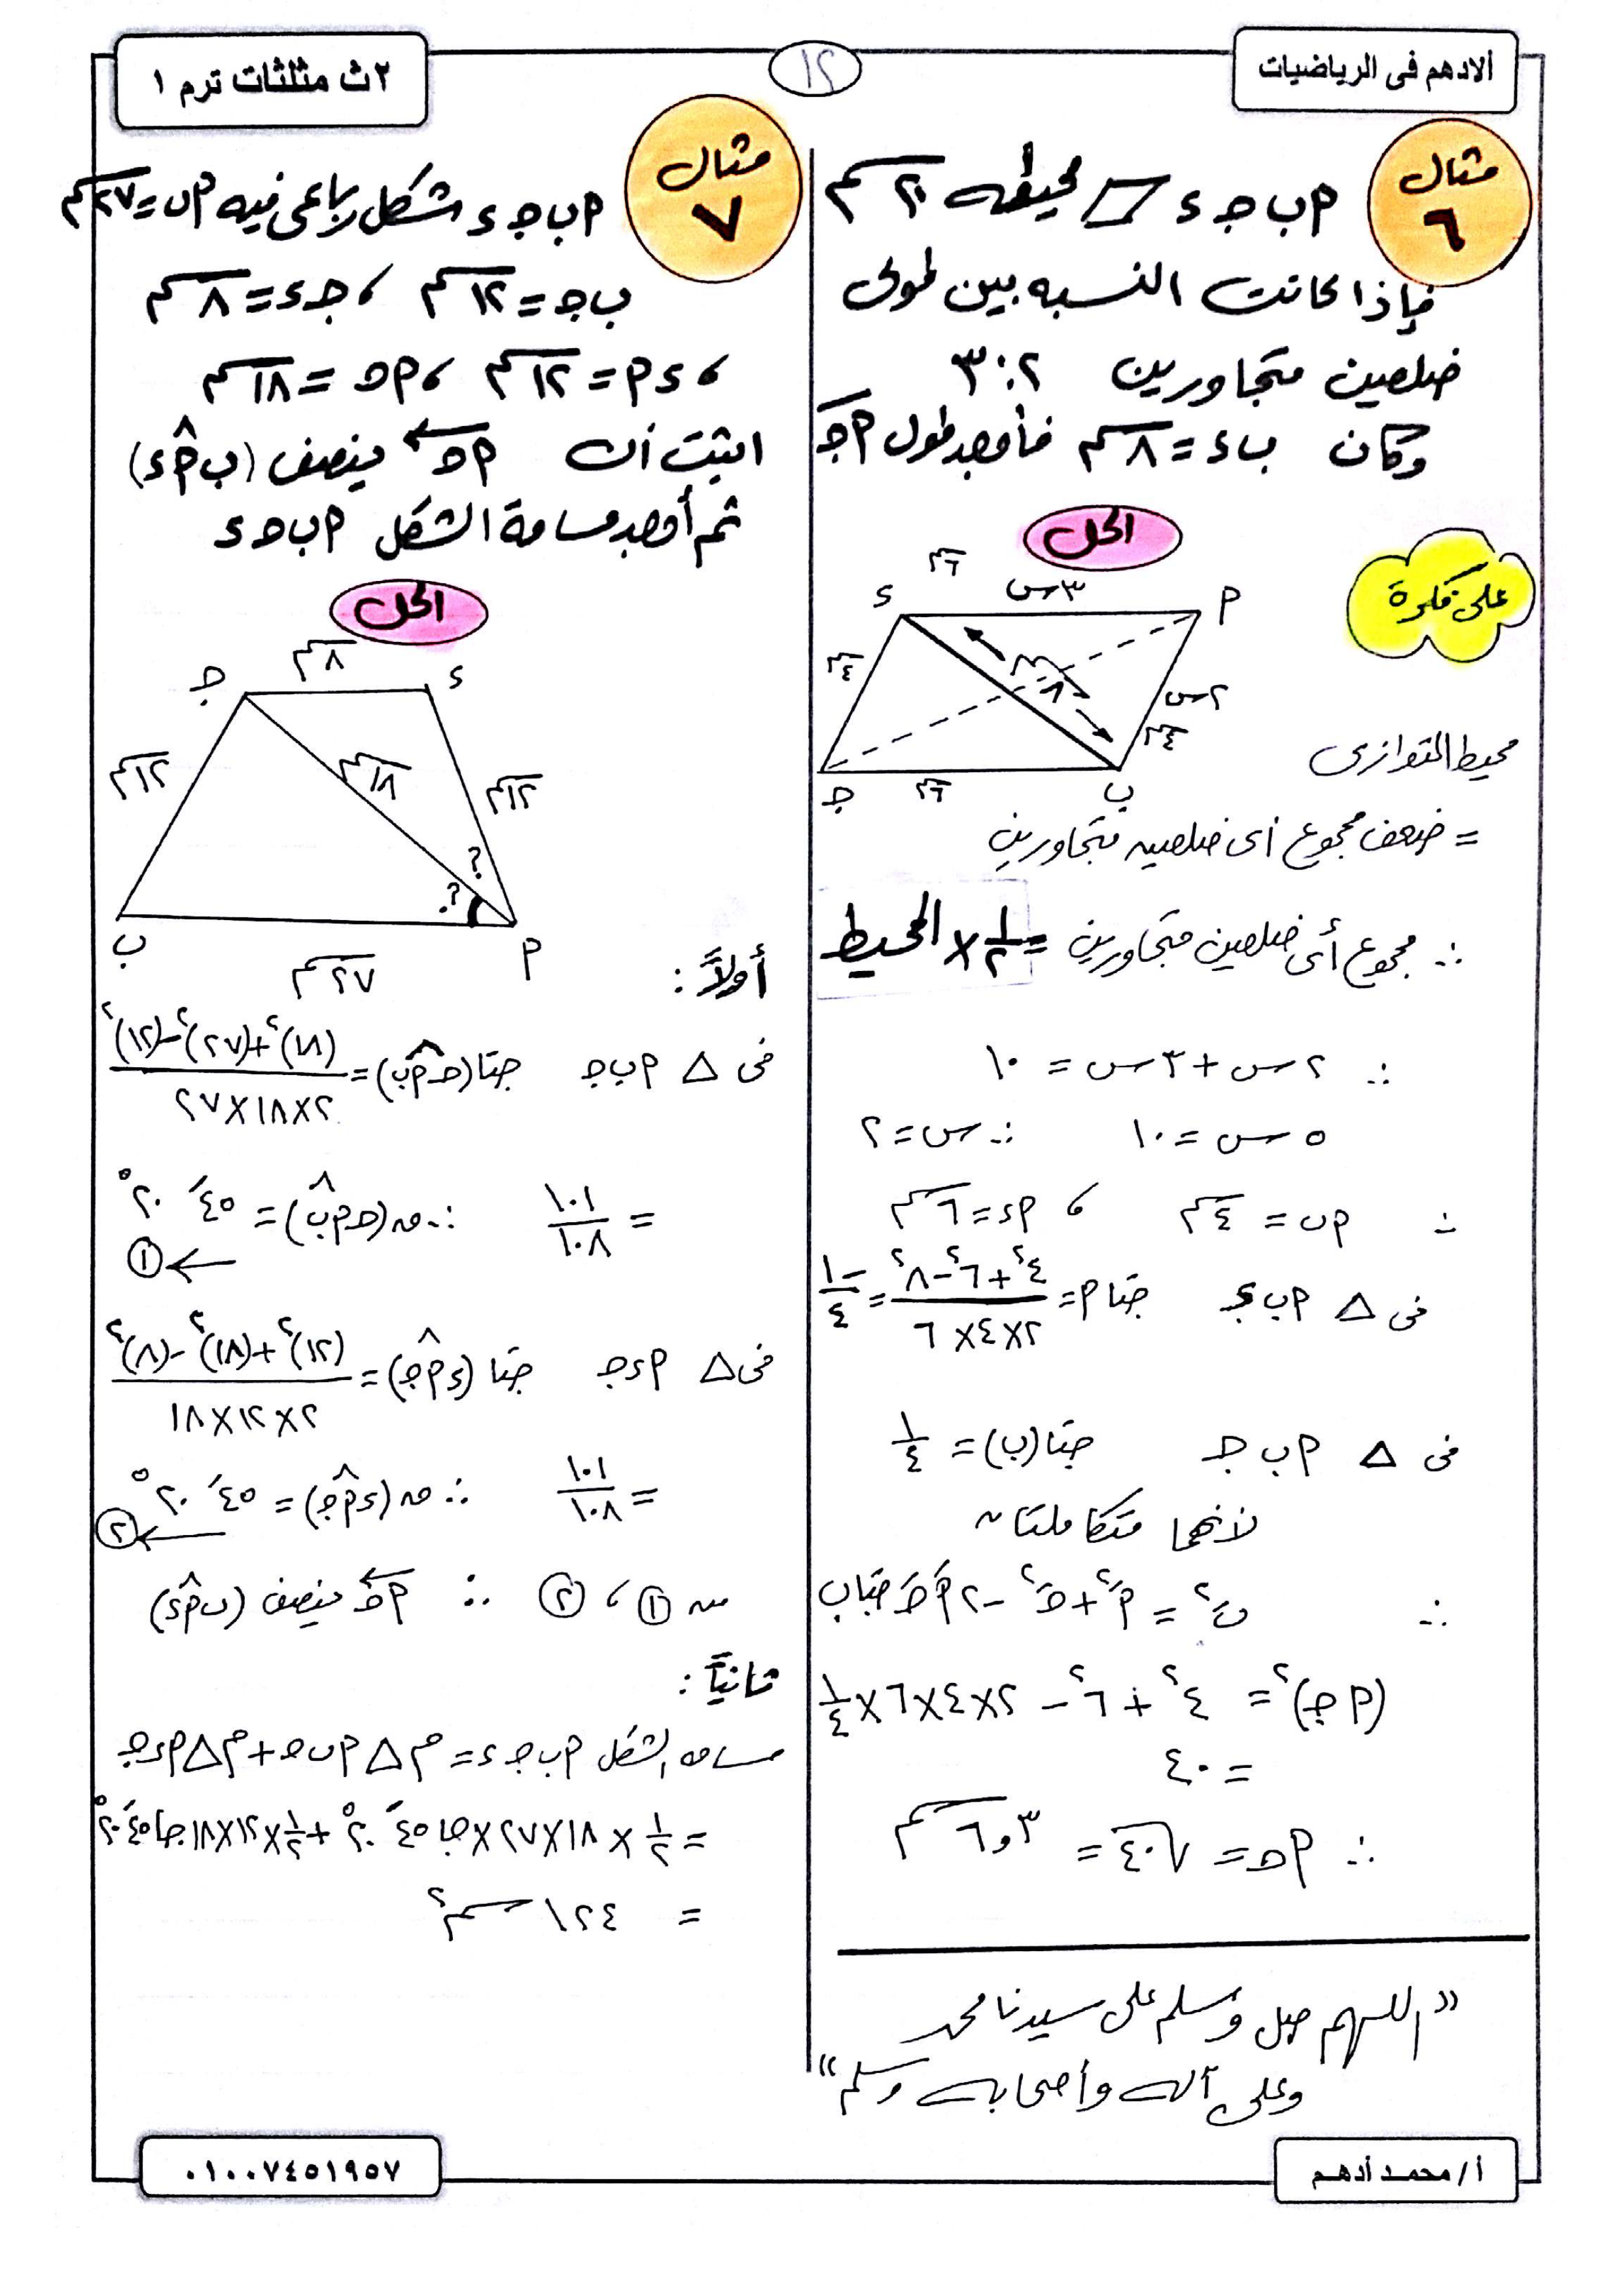 ألادهم فى الرياضيات
١٢
٢ث مثلثات ترم ١
مثال ٦
أ ب ج ء ▱ محيطه ٢٠ سم
فإذا كانت النسبه بين طولى
ضلعين متجاورين ٢ : ٣
وكان ب ء = ٨ سم فأوجد طول أ ج
الحل
على فكرة
٦ سم
٣س
ء
أ
٤ سم
٨ سم
٢س
٤ سم
ج
٦ سم
ب
محيط المتوازى
= ضعف مجموع أى ضلعين متجاورين
∴ مجموع أى ضلعين متجاورين = ١/٢ × المحيط
∴ ٢س + ٣س = ١٠
٥س = ١٠ ∴ س = ٢
∴ أ ب = ٤ سم ، أ ء = ٦ سم
فى △ أ ب ء جتا أ = (٤² + ٦² − ٨²) / (٢×٤×٦) = −١/٤
فى △ أ ب ج جتا(ب) = ١/٤
لأنهما متكاملتان
∴ بَ² = أَ² + جَ² − ٢ أَ جَ جتا ب
(أ ج)² = ٤² + ٦² − ٢×٤×٦×١/٤
= ٤٠
∴ أ ج = √٤٠ = ٦,٣ سم
«اللهم صل وسلم على سيدنا محمد
وعلى آله وأصحابه وسلم»
مثال ٧
أ ب ج ء شكل رباعى فيه أ ب = ٢٧ سم
ب ج = ١٢ سم ، ج ء = ٨ سم
، ء أ = ١٢ سم ، أ ج = ١٨ سم
اثبت أن أ ج ينصف (ب أ ء)
ثم أوجد مساحة الشكل أ ب ج ء
الحل
٨ سم
ج
ء
١٢ سم
١٨ سم
١٢ سم
؟
؟
ب
أ
٢٧ سم
أولاً :
فى △ أ ب ج جتا(ج أ ب) = ((١٨)² + (٢٧)² − (١٢)²) / (٢×١٨×٢٧)
= ١٠١/١٠٨ ∴ ق(ج أ ب) = ٤٥َ ٢٠°
← ①
فى △ أ ء ج جتا (ء أ ج) = ((١٢)² + (١٨)² − (٨)²) / (٢×١٢×١٨)
= ١٠١/١٠٨ ∴ ق(ء أ ج) = ٤٥َ ٢٠°
← ②
من ① ، ② ∴ أ ج ينصف (ب أ ء)
ثانياً :
مساحه الشكل أ ب ج ء = م △ أ ب ج + م △ أ ء ج
= ١/٢ × ١٨×٢٧× جا ٤٥َ ٢٠° + ١/٢ ×١٢×١٨ جا ٤٥َ ٢٠°
= ١٢٤ سم²
أ / محمـد أدهـم
٠١٠٠٧٤٥١٩٥٧